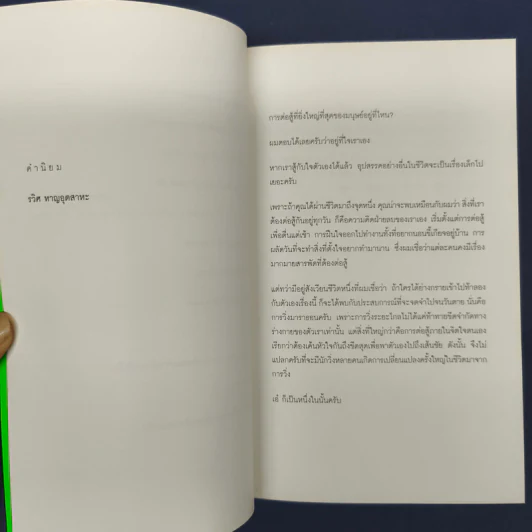 คำนิยม
รวิศ หาญอุตสาหะ
การต่อสู้ที่ยิ่งใหญ่ที่สุดของมนุษย์อยู่ที่ไหน?
ผมตอบได้เลยครับว่าอยู่ที่ใจเราเอง
หากเราสู้กับใจตัวเองได้แล้ว อุปสรรคอย่างอื่นในชีวิตจะเป็นเรื่องเล็กไป
เยอะครับ
เพราะถ้าคุณได้ผ่านชีวิตมาถึงจุดหนึ่ง คุณน่าจะพบเหมือนกับผมว่า สิ่งที่เรา
ต้องต่อสู้กันอยู่ทุกวัน ก็คือความคิดฝ่ายลบของเราเอง เริ่มตั้งแต่การต่อสู้
เพื่อตื่นแต่เช้า การฝืนใจออกไปทำงานทั้งที่อยากนอนขี้เกียจอยู่บ้าน การ
ผลัดวันที่จะทำสิ่งที่ตั้งใจอยากทำมานาน ซึ่งผมเชื่อว่าแต่ละคนคงมีเรื่อง
มากมายสารพัดที่ต้องต่อสู้
แต่ทว่ามีอยู่สังเวียนชีวิตหนึ่งที่ผมเชื่อว่า ถ้าใครได้ย่างกรายเข้าไปท้าลอง
กับตัวเองเรื่องนี้ ก็จะได้พบกับประสบการณ์ที่จะจดจำไปจนวันตาย นั่นคือ
การวิ่งมาราธอนครับ เพราะการวิ่งระยะไกลไม่ได้แค่ท้าทายขีดจำกัดทาง
ร่างกายของตัวเราเท่านั้น แต่สิ่งที่ใหญ่กว่าคือการต่อสู้ภายในจิตใจตนเอง
เรียกว่าต้องเค้นหัวใจกันถึงขีดสุดเพื่อพาตัวเองไปถึงเส้นชัย ดังนั้น จึงไม่
แปลกครับที่จะมีนักวิ่งหลายคนเกิดการเปลี่ยนแปลงครั้งใหญ่ในชีวิตมาจาก
การวิ่ง
เอ๋ ก็เป็นหนึ่งในนั้นครับ